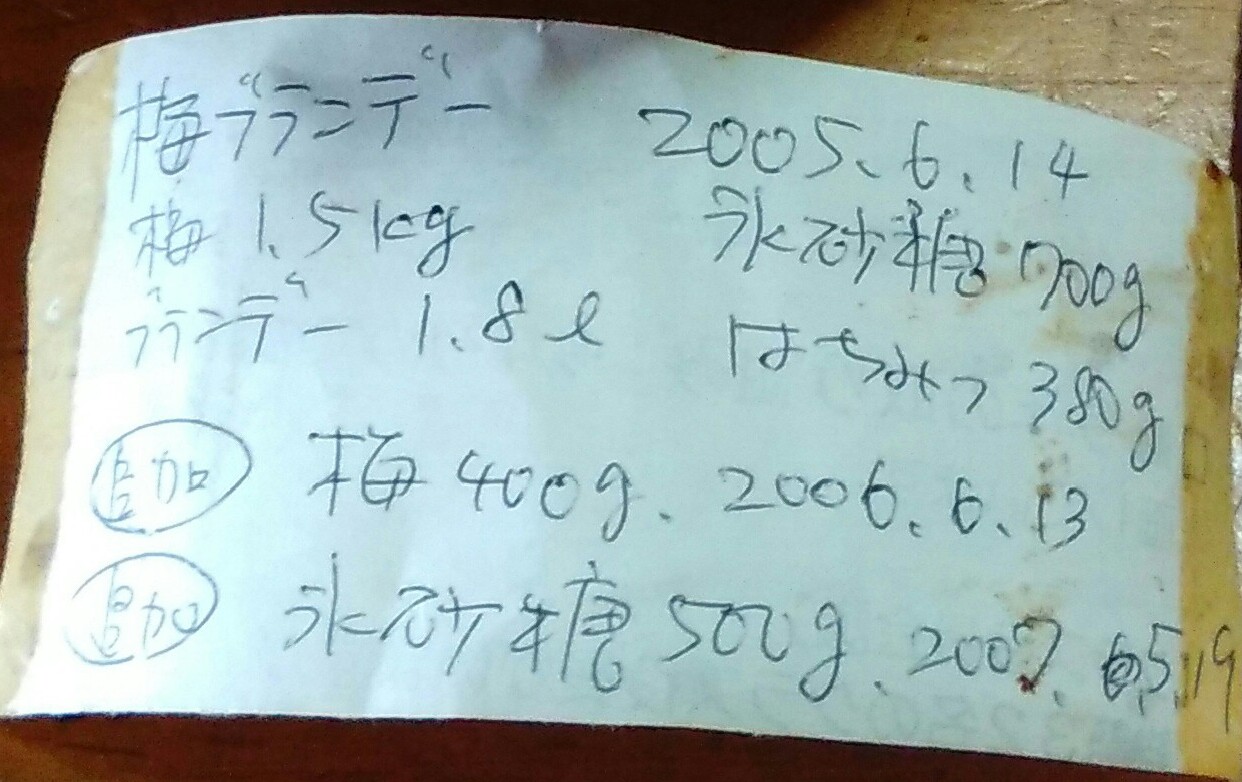 梅ブランデー 2005.6.14
梅 1.5kg 氷砂糖 700g
ブランデー 1.8ℓ はちみつ 380g
追加 梅 400g、2006.6.13
追加 氷砂糖 500g、2007.5.19